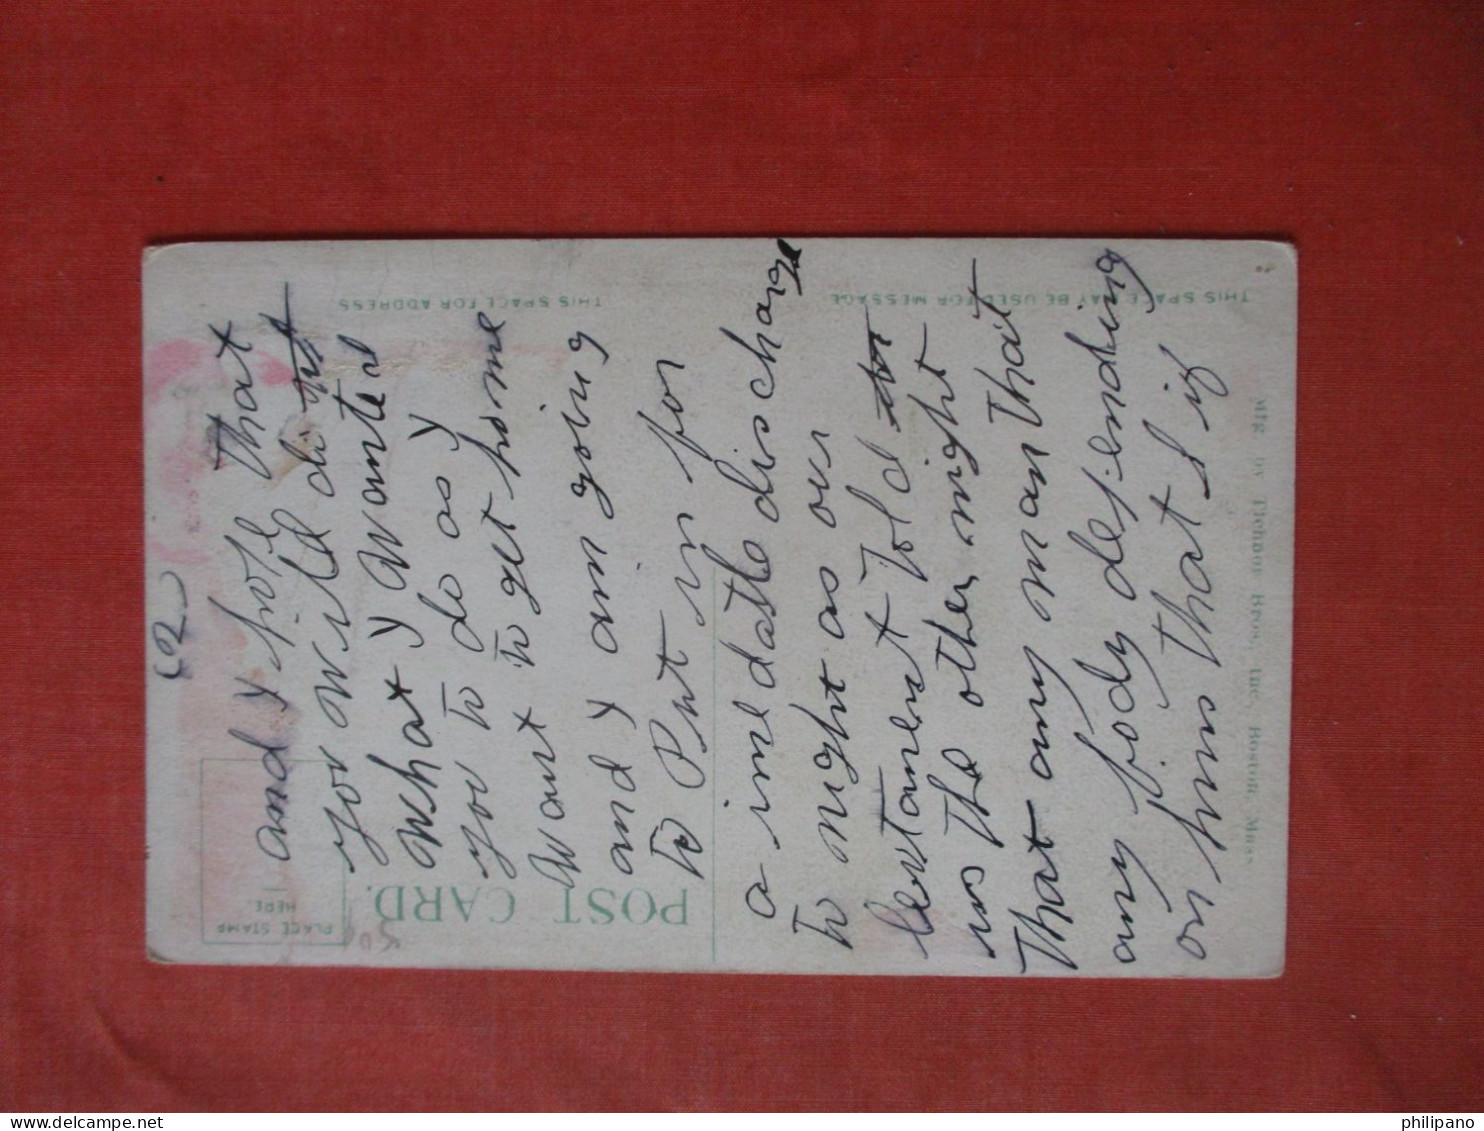 (2)
and y hope that
you wild di
what y wanted
you to do as y
want to get home
and y am going
to Put in for
a imedatle discharge
to night as over
leutanent told
us the other night
that any man that
any body depending
on hims that if
THIS SPACE FOR ADDRESS
THIS SPACE MAY BE USED FOR MESSAGE
POST CARD.
PLACE STAMP
HERE.
Mfg. by Tichnor Bros., Inc., Boston, Mass.
philipano